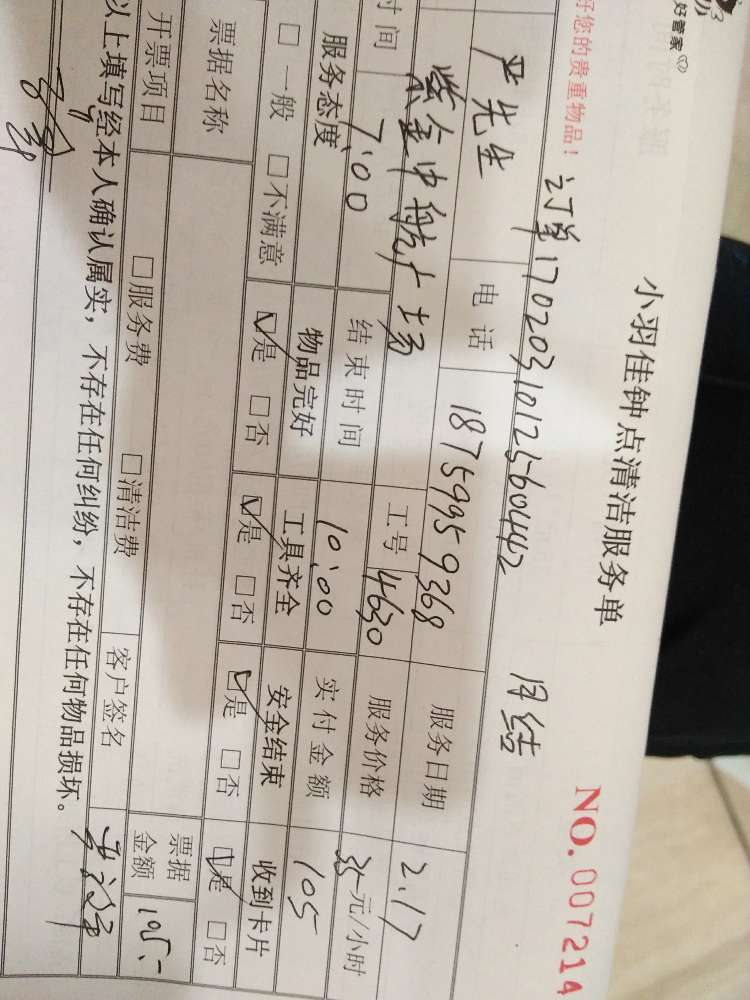 好管家
小羽佳钟点清洁服务单
NO.007214
好您的贵重物品！ 订单1702031012560442 月结
严先生 电话 18759959368 服务日期 2.17
紫金中航广场 工号 4630 服务价格 35元/小时
时间 7:00 结束时间 10:00 实付金额 105
服务态度 物品完好 工具齐全 安全结束 收到卡片
□一般 □不满意 ☑是 □否 ☑是 □否 ☑是 □否 ☑是 □否
票据名称 票据金额 105.-
开票项目 □服务费 □清洁费 客户签名
以上填写经本人确认属实，不存在任何纠纷，不存在任何物品损坏。